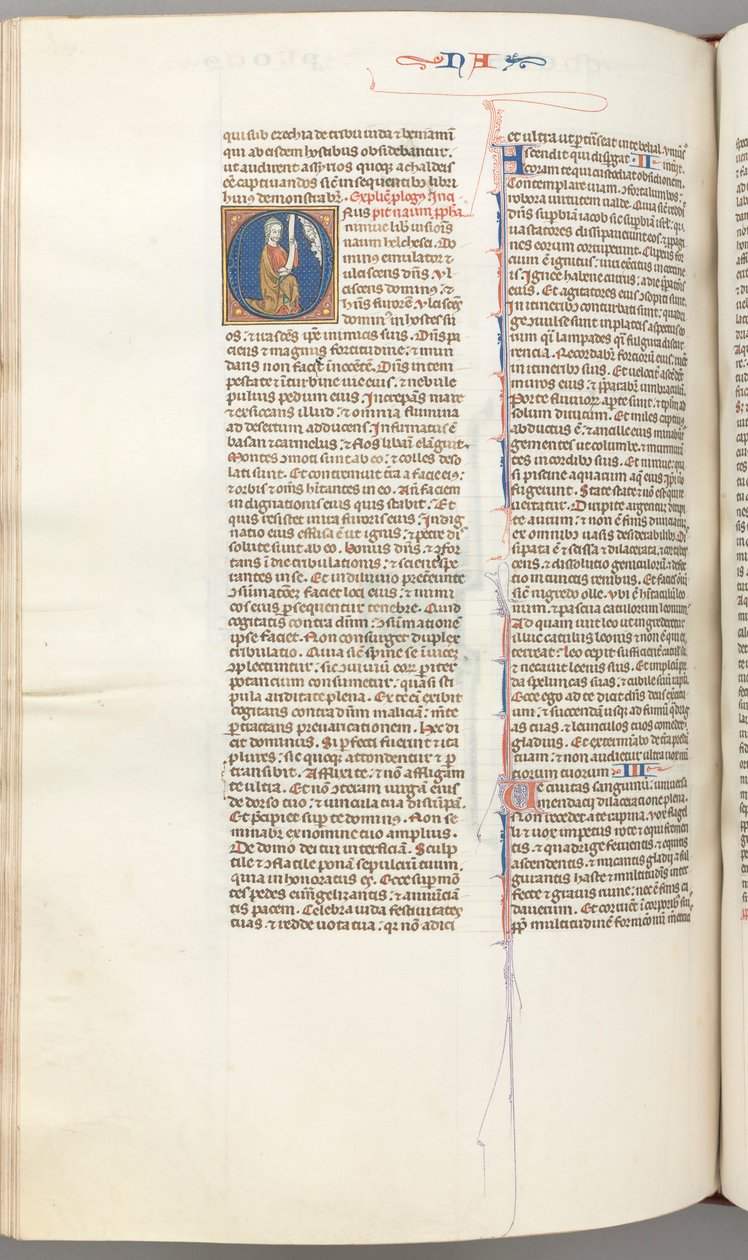 NA
qui sub ezechia de tribu iuda et beniami
qui ab eisdem hostibus obsidebantur.
ut audirent assyrios quoque a chaldeis
eē captiuandos sic̄ in sequentibꝰ libri
huius demonstrabit᷑. Explic̄ plogꝰ Inci
ONus pit naum ppha
niniue lib̄ uisiōis
naum helchesei. Do
minus emulator ⁊
ulciscens dn̄s. Vl
ciscens dominus: ⁊
hn̄s furorē. Vlciscēs
dominꝰ in hostes su
os: ⁊ irascēs ipe inimicis suis. Dn̄s pa
ciens ⁊ magnus fortitudine: ⁊ mun
dans non faciet innocētē. Dn̄s in tem
pestate ⁊ ī turbine uie eius: ⁊ nebule
puluis pedum eius. Increpans mare
⁊ exsiccans illud: ⁊ omnia flumina
ad desertum adducens. Infirmatus ē
basan ⁊ carmelus: ⁊ flos libani elāguit.
Montes ꝯmoti sunt ab eo: ⁊ colles deso
lati sunt. Et contremuit t̄ra a facie eiꝰ:
⁊ orbis ⁊ om̄s hītantes in eo. An̄ faciem
indignationis eius quis stabit: Et
quis resistet in ira furoris eius: Indig
natio eius effusa ē ut ignis: ⁊ petre dis
solute sunt ab eo. Bonus dn̄s: ⁊ ꝯfor
tans ī die tribulationis: ⁊ sciens spe
rantes in se. Et in diluuio pretereunte
ꝯsūmationē faciet loci eius: ⁊ inimi
cos eius persequentur tenebre. Quid
cogitatis contra dn̄m: ꝯsūmationē
ipse faciet. Non consurget duplex
tribulatio. Quia sic̄ spine se inuicē
ꝯplectuntur: sic ꝯuiuiū eoꝝ pariter
potancium consumetur: quasi sti
pula ariditate plena. Ex te exi exibit
cogitans contra dn̄m maliciā: m̄te
pertractans preuaricationem. Hec di
cit dominus. Si perfecti fuerint ⁊ ita
plures: sic quoque attondentur ⁊ per
transibit. Afflixi te: ⁊ nō affligam
te ultra. Et nc̄ ꝯteram uirgā eius
de dorso tuo: ⁊ uincula tua disrūpā.
Et precipiet super te dominus. Non se
minabit᷑ ex nomine tuo amplius.
De domo dei tui interficiā. Sculp
tile ⁊ ꝯflatile ponā sepulcrū tuum:
quia inhonoratus es. Ecce super mō
tes pedes euāgelizantis: ⁊ annūciā
tis pacem. Celebra iuda festiuitates
tuas: ⁊ redde uota tua: qr nō adici
et ultra ut pertrāseat in te belial. Vniūsꝰ
Ascendit qui dispergat II interiit.
coram te qui custodiat obsidionem.
Contemplare uiam: ꝯforta lumbos:
robora uirtutem ualde. Quia sic̄ reddidit
dn̄s supbiā iacob sic supbiā isrl: quia
uastatores dissipauerunt eos: ⁊ ppagi
nes eorum corruperunt. Clipeus for
cium eꝰ ignitus: uiri exercitus in coccine
is. Ignee habene currus: ī die ppatōnis
eius. Et agitatores eius ꝯsopiti sunt.
In itineribꝰ conturbati sunt: quadri
ge ꝯllise sunt in plateis. Aspectus eo
rum qi lampades: qi fulgura discur
rencia. Recordabit᷑ fortium eius: ruēt
in itineribꝰ suis. Et uelocit᷑ ascēdēt
muros eius: ⁊ pparabit᷑ umbraculū.
Porte fluuioꝝ apte sunt: ⁊ tēplū ad
solum dirutum. Et miles captiuꝰ
abductus ē: ⁊ ancille eius minabāt᷑
gementes ut columbe: ⁊ murmurā
tes in cordibꝰ suis. Et niniue: qua
si piscine aquarum aq̄ eius: ipi uo
fugerunt. State state ⁊ nō est qui re
uertatur. Diripite argentum diripi
te aurum: ⁊ non ē finis diuiciaꝝ:
ex omnibus uasis desiderabilibꝰ. Dis
sipata ē ⁊ scissa ⁊ dilacerata: ⁊ cor tabes
cens: ⁊ dissolutio geniculoꝝ: ⁊ defec
tio in cunctis renibus. Et facies oīum
sic̄ nigredo olle. Vbi ē h̄itaculū leo
num: ⁊ pascua catulorum leonum:
Ad quam iuit leo ut ingrederetur
illuc catulus leonis ⁊ non ē qui ex
terreat: Leo cepit sufficient᷑ catulis suis:
⁊ necauit leenis suis. Et impleuit pre
da speluncas suas: ⁊ cubile suū rapina.
Ecce ego ad te dicit dn̄s deus exercitu
um: ⁊ succendā usqꝫ ad fumū quadrig
as tuas: ⁊ leunculos tuos comedet
gladius. Et exterminabo de t̄ra predā
tuam: ⁊ non audietur ultra uox nūc
tiorum tuorum III
Ve ciuitas sanguinū: uniuersa
mendacij dilaceratione plena.
Non recedet a te rapina. Vox flagel
li ⁊ uox impetus rote ⁊ equi fremen
tis: ⁊ quadrige feruentis: ⁊ equitis
ascendentis: ⁊ micantis gladij ⁊ ful
gurantis haste ⁊ multitudīs inter
fecte ⁊ grauis ruine: nec ē finis ca
dauerum. Et corruēt ī corporibꝰ suis:
ppt multitudinē fornicōnū meret